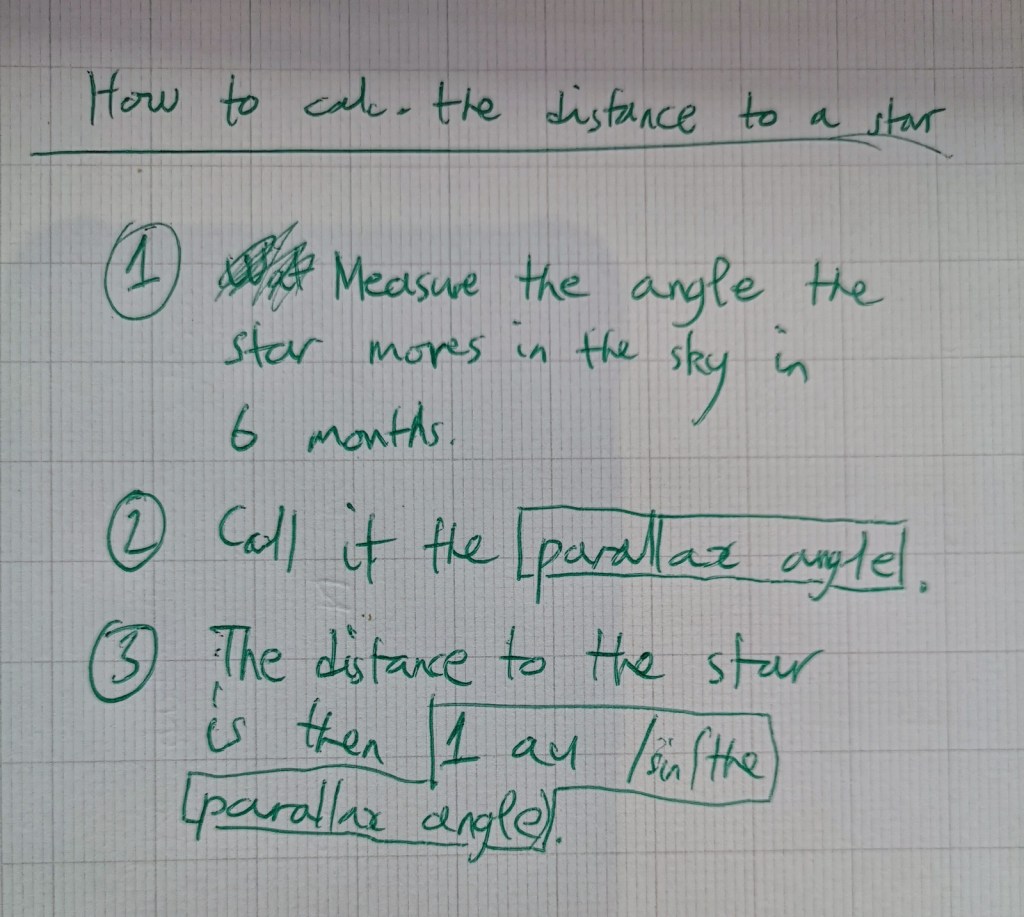 How to calc. the distance to a star
① Measure the angle the
star moves in the sky in
6 months.
② Call it the parallax angle.
③ The distance to the star
is then 1 au / sin(the
parallax angle).